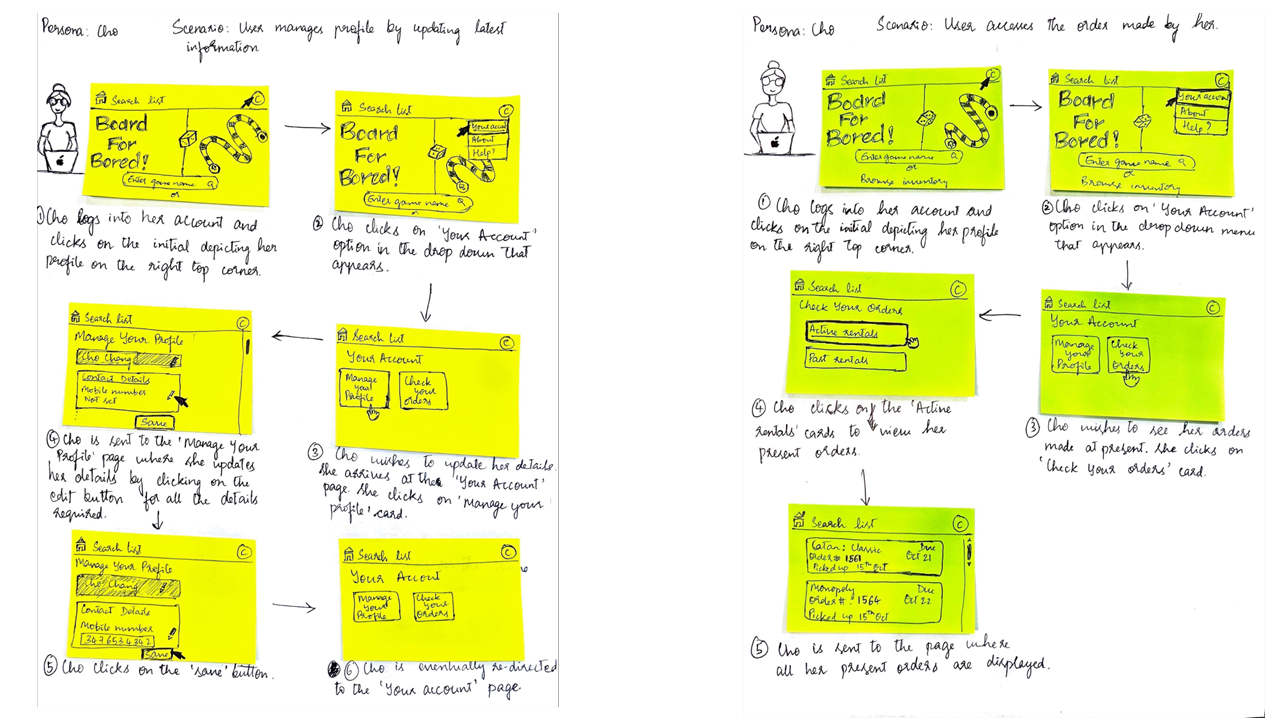 Persona: Cho Scenario: User manages profile by updating latest
information
Search list C
Board
For
Bored!
Enter game name
or
① Cho logs into her account and
clicks on the initial depicting her
profile on the right top corner.
Search list C
Board
For
Bored!
Your accou
About
Help?
Enter game name
or
② Cho clicks on 'Your Account'
option in the drop down that
appears.
Search list C
Your Account
Manage
your
Profile
Check
your
orders
③ Cho wishes to update her details.
She arrives at the 'Your Account'
page. She clicks on 'Manage your
profile' card.
Search list C
Manage Your Profile
Cho Chang
Contact Details
Mobile number
Not set
Save
④ Cho is sent to the 'Manage Your
Profile' page where she updates
her details by clicking on the
edit button for all the details
required.
Search list C
Manage Your Profile
Cho Chang
Contact Details
Mobile number
3476534342
Save
⑤ Cho clicks on the 'save' button.
Search list C
Your Accout
Manage
Your
Profile
Check
your
orders
⑥ Cho is eventually re-directed
to the 'Your account' page.
Persona: Cho Scenario: User accesses the order made by her.
Search list C
Board
For
Bored!
Enter game name
or
Browse inventory
① Cho logs into her account and
clicks on the initial depicting her profile
on the right top corner.
Search list C
Board
For
Bored!
Your accoun
About
Help?
Enter game name
or
Browse inventory
② Cho clicks on 'Your Account'
option in the drop down menu
that appears.
Search list C
Your Account
Manage
your
Profile
Check
your
Orders
③ Cho wishes to see her orders
made at present. She clicks on
'Check Your orders' card.
Search list C
Check Your Orders
Active rentals
Past rentals
④ Cho clicks on the 'Active
rentals' cards to view her
present orders.
Search list C
Catan: Classic Due
Order # 1561 Oct 21
Picked up 15th Oct
Monopoly Due
Order #: 1564 Oct 22
Picked up 15th Oct
⑤ Cho is sent to the page where
all her present orders are displayed.